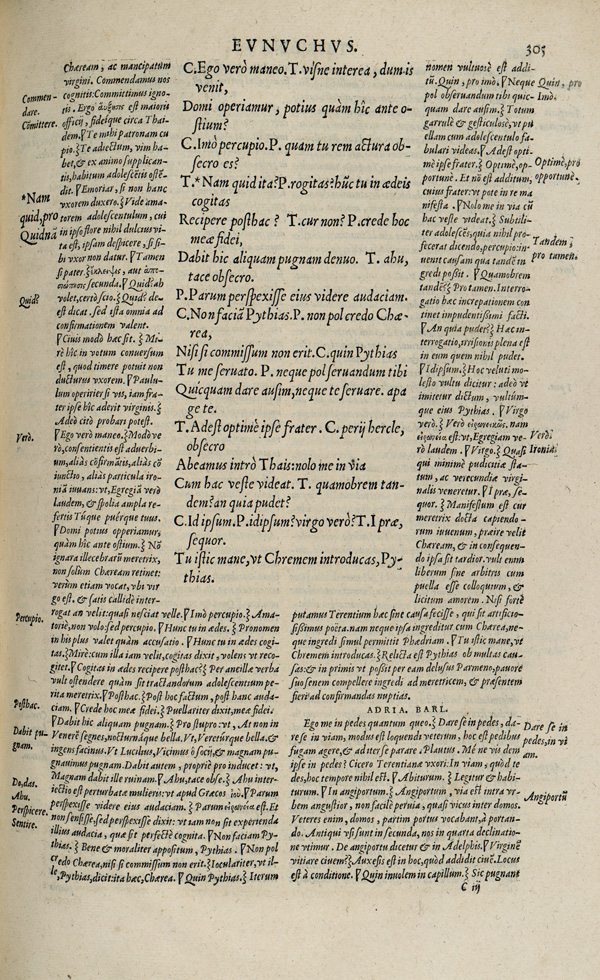 EVNVCHVS.
305
Chæream, ac mancipatum
virgini. Commendamus nos
cognitis: Committimus igno-
tis. Ergo est maioris
officij, fideique circa Thai-
dem. Te mihi patronam cu
pio. Te adiectum, vim ha-
bet, & ex animo supplican-
tis, habitum adolescẽtis ostẽ-
dit. Emoriar, si non hanc
vxorem duxero. Vide ama-
torem adolescentulum, cui
in ipso flore nihil dulcius vi-
ta est, ipsam despicere, si si-
bi vxor non datur. Tamen
si pater.
secunda. Quid? ab
volet, certò scio. Quid? de-
est dicat. sed ista omnia ad
confirmationem valent.
Ciuis modò hæc sit. Mi-
rè hîc in votum conuersum
est, quod timere potuit non
ducturus vxorem. Paulu-
lum opperirier si vis, iam fra-
ter ipse hîc aderit virginis.
Adeò citò probari potest.
Ego verò maneo. Modò ve
rò, consentientis est aduerbi-
um, aliàs cõfirmãtis, aliàs cõ
iunctio, aliàs particula iro-
niã iuuans: vt, Egregiã verò
laudem, & spolia ampla re-
fertis Túque puérque tuus.
Domi potius opperiamur,
quàm hîc ante ostium. Nõ
ignara illecebrarũ meretrix,
non solùm Chæream retinet:
verùm etiam vocat, vbi vir
go est. & satis callidè inter-
rogat an velit: quasi nesciat velle. Imò percupio. Ama-
toriè, non volo: sed percupio. Hunc tu in ædes. Pronomen
in his plus valet quàm accusatio. Hunc tu in ædes cogi-
tas. Mirè: cum illa iam velit, cogitas dixit, volens vt reco-
gitet. Cogitas in ædes recipere posthac? Per ancillæ verba
vult ostendere quàm sit tractandorum adolescentum pe-
rita meretrix. Posthac. Post hoc factum, post hanc auda-
ciam. Crede hoc meæ fidei. Puellariter dixit, meæ fidei.
Dabit hic aliquam pugnam. Pro stupro: vt, At non in
Venerẽ segnes, nocturnáque bella. Vt, Veterúrque bella, &
ingens facinus. Vt Lucilius, Vicimus ô socij, & magnam pu-
gnauimus pugnam. Dabit autem, propriè pro inducet: vt,
Magnam dabit ille ruinam. Ahu, tace obsec. Ahu inter-
iectio est perturbatæ mulieris: vt apud Græcos. Parum
perspexisse videre eius audaciam. Parum est. Et
non sensisse, sed perspexisse dixit: vt iam non sit experienda
illius audacia, quæ sit perfectè cognita. Non faciam Py-
thias. Bene & moraliter appositum, Pythias. Non pol
credo Chærea, nisi si commissum non erit. Ioculariter, vt il-
le, Pythias, dicit: ita hæc, Chærea. Quin Pythias. Iterum
Commen-
dare.
Cõmittere.
*Nam
quid, pro
Quidnã
Quid?
Verò.
Percupio.
Posthac.
Dabit pu-
gnam.
Do, das.
Ahu.
Perspicere.
Sentire.
C. Ego verò maneo. T. visne interea, dum is
venit,
Domi operiamur, potius quàm hîc ante o-
stium?
C. Imò percupio. P. quam tu rem actura ob-
secro es?
T. *Nam quid ita? P. rogitas? hũc tu in ædeis
cogitas
Recipere posthac? T. cur non? P. crede hoc
meæ fidei,
Dabit hic aliquam pugnam denuo. T. ahu,
tace obsecro.
P. Parum perspexisse eius videre audaciam.
C. Non faciã Pythias. P. non pol credo Chæ-
rea,
Nisi si commissum non erit. C. quin Pythias
Tu me seruato. P. neque pol seruandum tibi
Quicquam dare ausim, neque te seruare. apa
ge te.
T. Adest optimè ipse frater. C. perij hercle,
obsecro
Abeamus intrò Thais: nolo me in via
Cum hac veste videat. T. quamobrem tan-
dem? an quia pudet?
C. Id ipsum. P. idipsum? virgo verò? T. I præ,
sequor.
Tu istic mane, vt Chremem introducas, Py-
thias.
nomen vultuosè est addi-
tũ. Quin, pro imò. Neque
pol obseruandum tibi quic-
quam dare ausim. Totum
garrulè & gesticulosè, vt pu
ellam cum adolescentulo fa-
bulari videas. Adest opti-
mè ipse frater. Optimè, op-
portunè. Et nõ est additum,
cuius frater: vt pote in re ma
nifesta. Nolo me in via cũ
hac veste videat. Subtili-
ter adolescẽs, quia nihil pro-
fecerat dicendo, percupio: in-
uenit causam qua tandẽ in
gredi possit. Quamobrem
tandẽ? Pro tamen. Interro-
gatio hæc increpationem con
tinet impudentissimi facti.
An quia pudet? Hæc in-
terrogatio, irrisionis plena est
in eum quem nihil pudet.
Idipsum. Hoc veluti mo-
lesto vultu dicitur: adeò vt
imitetur dictum, vultúm-
que eius Pythias. Virgo
verò. Verò nam
est: vt, Egregiam ve-
rò laudem. Virgo. Quasi
qui minimè pudicitiæ sta-
tum, ac verecundiæ virgi-
nalis veneretur. I præ, se-
quor. Manifestum est cur
meretrix docta capiendo-
rum iuuenum, præire velit
Chæream, & in consequen-
do ipsa sit tardior. vult enim
liberum sine arbitris cum
puella esse colloquium, &
licitum amorem. Nisi fortè
putamus Terentium hæc sine causa fecisse, qui sit artificio-
sissimus poëta. nam neque ipsa ingreditur cum Chærea, ne-
que ingredi simul permittit Phædriam. Tu istic mane, vt
Chremem introducas. Relicta est Pythias ob multas cau-
sas: & in primis vt possit per eam delusus Parmeno, pauore
suo senem compellere ingredi ad meretricem, & præsentem
fieri ad confirmandas nuptias.
ADRIA. BARL.
Ego me in pedes quantum queo. Dare se in pedes, da-
re se in viam, modus est loquendi veterum, hoc est pedibus
fugam agere, & ad iter se parare. Plautus. Mé ne vis dem
ipse in pedes? Cicero Terentianæ vxori: In viam, quòd te
des, hoc tempore nihil est. Abiturum. Legitur & habi-
turum. In angiportum. Angiportum, via est intra vr-
bem angustior, non facilè peruia, quasi vicus inter domos.
Veteres enim, domos, partim portus vocabant, à portan-
do. Antiqui vsi sunt in secunda, nos in quarta declinatio-
ne vtimur. De angiportu dicetur & in Adelphis. Virginẽ
vitiare ciuem? Auxesis est in hoc, quòd addidit ciuẽ. Locus
est à conditione. Quin inuolem in capillum. Sic pugnant
Quin, pro
Imò.
Optimè, pro
opportunè.
Tandem,
pro tamen.
Verò.
Ironia.
Dare se in
pedes, in vi
am.
Angiportũ
C iij